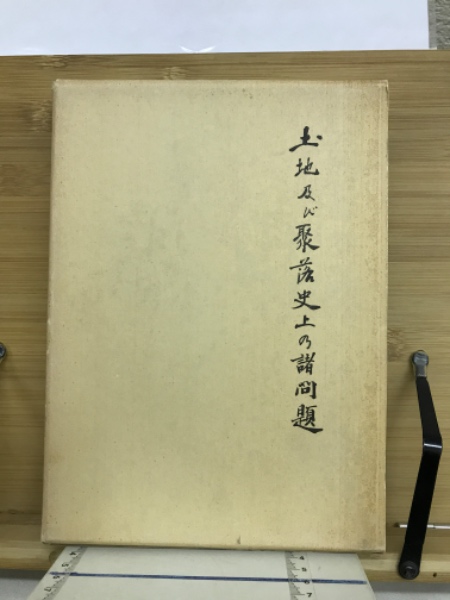 土地及び聚落史上の諸問題